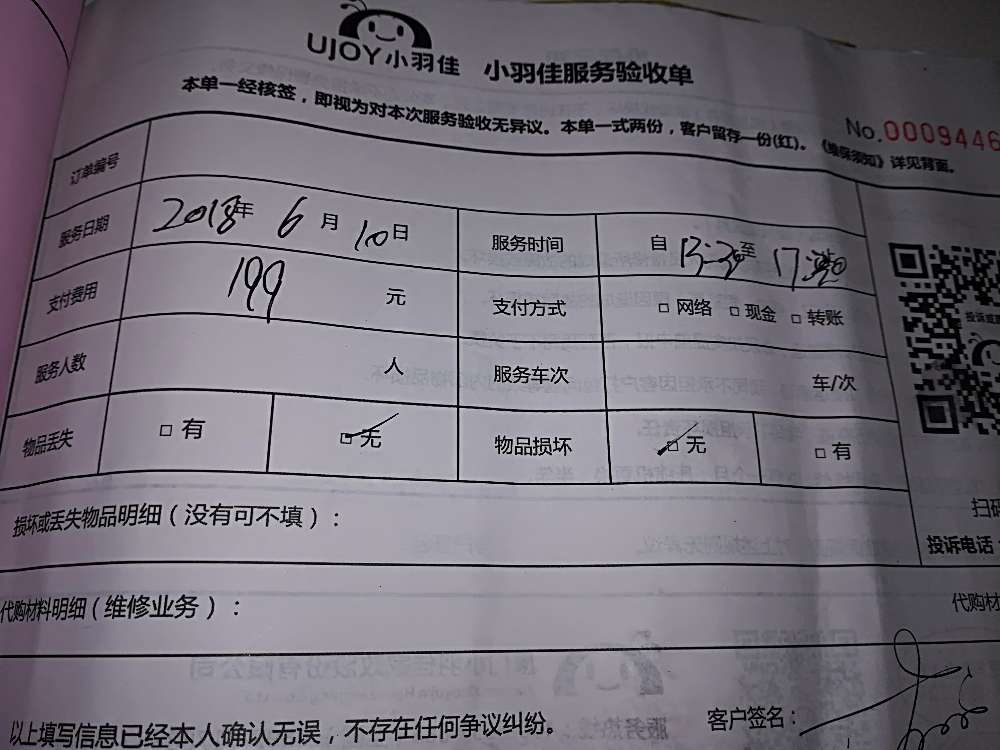 UJOY小羽佳 小羽佳服务验收单
本单一经核签，即视为对本次服务验收无异议。本单一式两份，客户留存一份(红)。《维保须知》详见背面。
No.0009446
订单编号
服务日期 2018年 6 月 10日 服务时间 自 13:30至 17:30
支付费用 199 元 支付方式 □ 网络 □ 现金 □ 转账
服务人数 人 服务车次 车/次
物品丢失 □ 有 □ 无 物品损坏 □ 无 □ 有
投诉或
扫码
损坏或丢失物品明细（没有可不填）：
投诉电话：
代购材料明细（维修业务）：
代购材
以上填写信息已经本人确认无误，不存在任何争议纠纷。
客户签名：